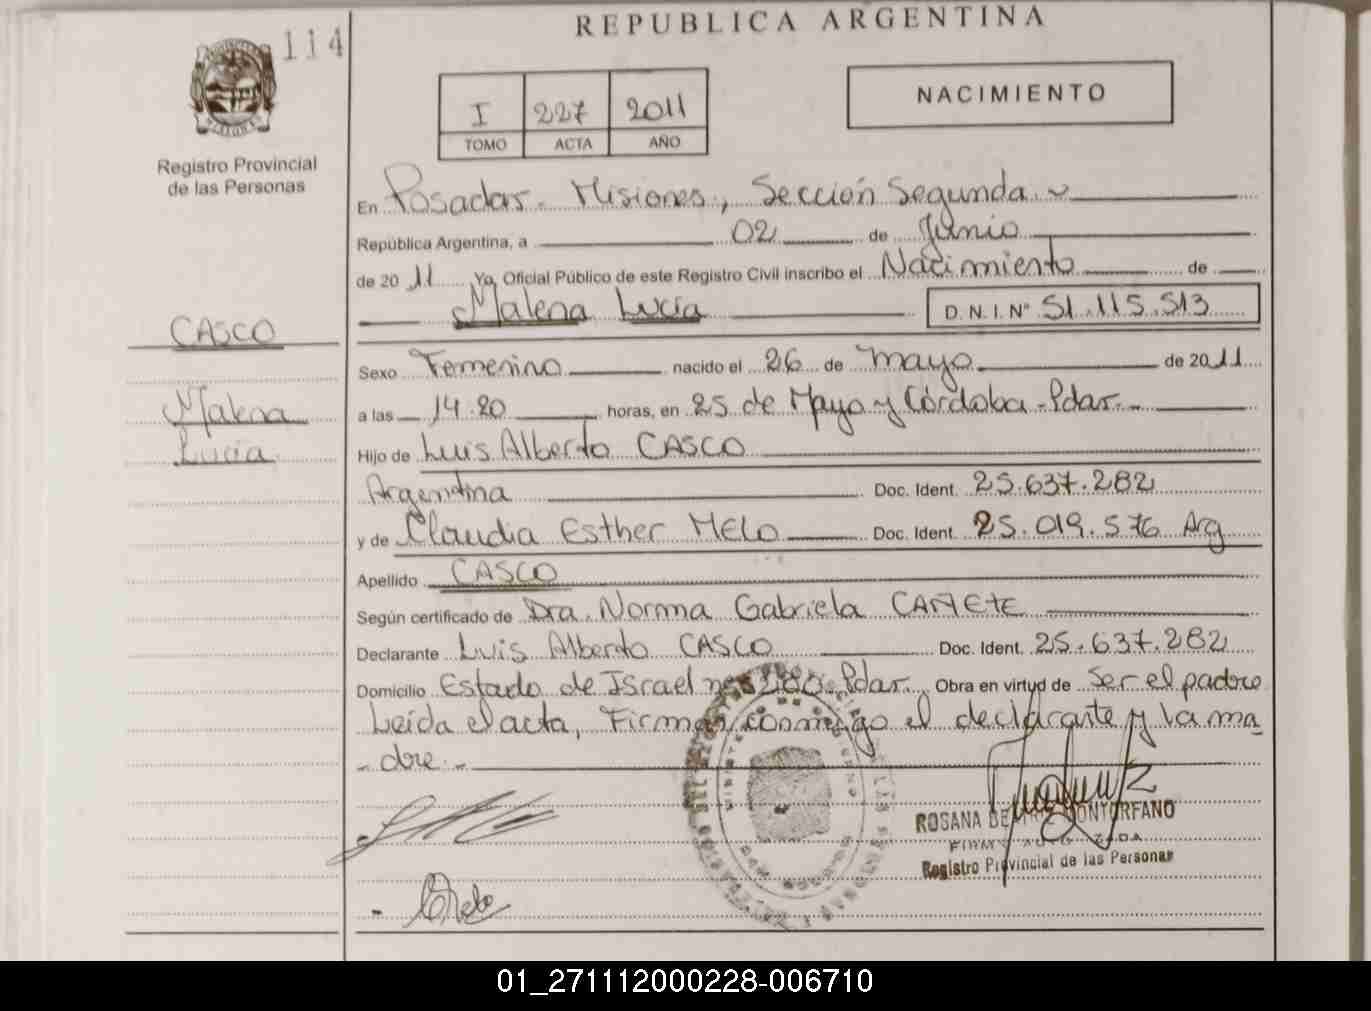 114
REPUBLICA ARGENTINA
I 227 2011
TOMO ACTA AÑO
NACIMIENTO
Registro Provincial
de las Personas
En Posadas - Misiones, Sección Segunda
República Argentina, a 02 de Junio
de 2011 Yo, Oficial Público de este Registro Civil inscribo el Nacimiento de
Malena Lucía D. N. I. Nº 51.115.513
CASCO
Malena
Lucía
Sexo Femenino nacido el 26 de mayo de 2011
a las 14.20 horas, en 25 de Mayo y Córdoba - Pdas.
Hijo de Luis Alberto CASCO
Argentina Doc. Ident. 25.637.282
y de Claudia Esther MELO Doc. Ident. 25.019.576 Arg
Apellido CASCO
Según certificado de Dra. Norma Gabriela CAÑETE
Declarante Luis Alberto CASCO Doc. Ident. 25.637.282
Domicilio Estado de Israel Pdas. Obra en virtud de Ser el padre
Leída el acta, Firman conmigo el declarante y la ma
dre.-
ROSANA
Registro Provincial de las Personas
01_271112000228-006710